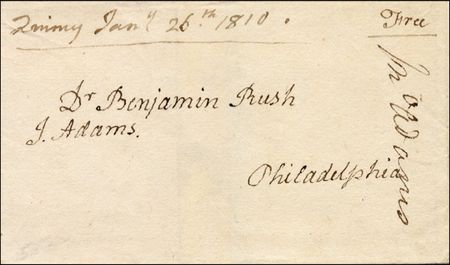 Quincy Jany 26.th 1810.
Free
Dr Benjamin Rush
J. Adams.
Philadelphia
Jn Adams